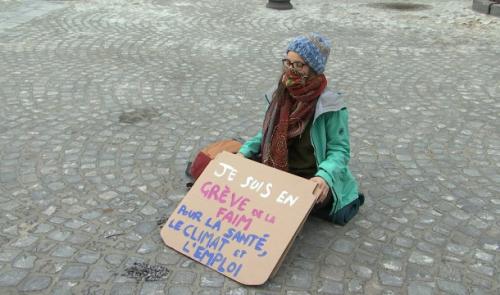 JE SUIS EN
GRÈVE DE LA
FAIM
POUR LA SANTÉ,
LE CLIMAT ET
L'EMPLOI